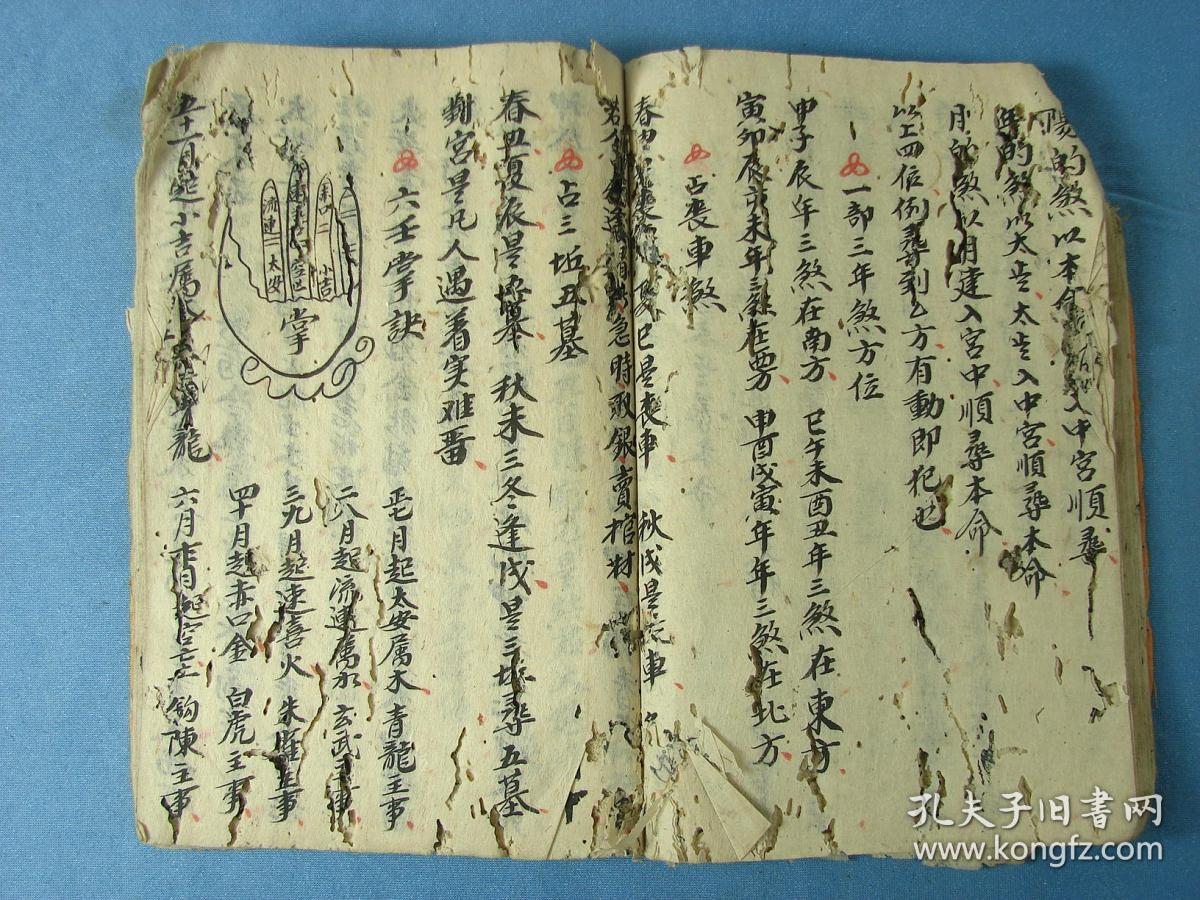 陽的煞以本命入中宮順尋
的煞以太歲太歲入中宮順尋本命
月的煞以月建入宮中順尋本命
以上四位例尋到乙方有動即犯也
一部三年煞方位
申子辰年三煞在南方 巳午未酉丑年三煞在東方
寅卯辰亥未年三煞在西方 申酉戌寅年年三煞在北方
占喪車煞
春丑 巳是喪車 秋戌是 車
急時敗銀賣棺材
占三坵五墓
春丑夏辰是 秋未三冬逢戌是三坵尋五墓
對宮是凡人遇着實难畨
六壬掌訣
赤口
小吉
速喜
空亡
流連
太安
掌
正七月起太安属木 青龍主事
二八月起流連属水 玄武主事
三九月起速喜火 朱雀主事
四十月起赤口金 白虎主事
五十一月起小吉属 龍
六月十二月起空亡土 鈎陳主事
孔夫子旧書网
www.kongfz.com